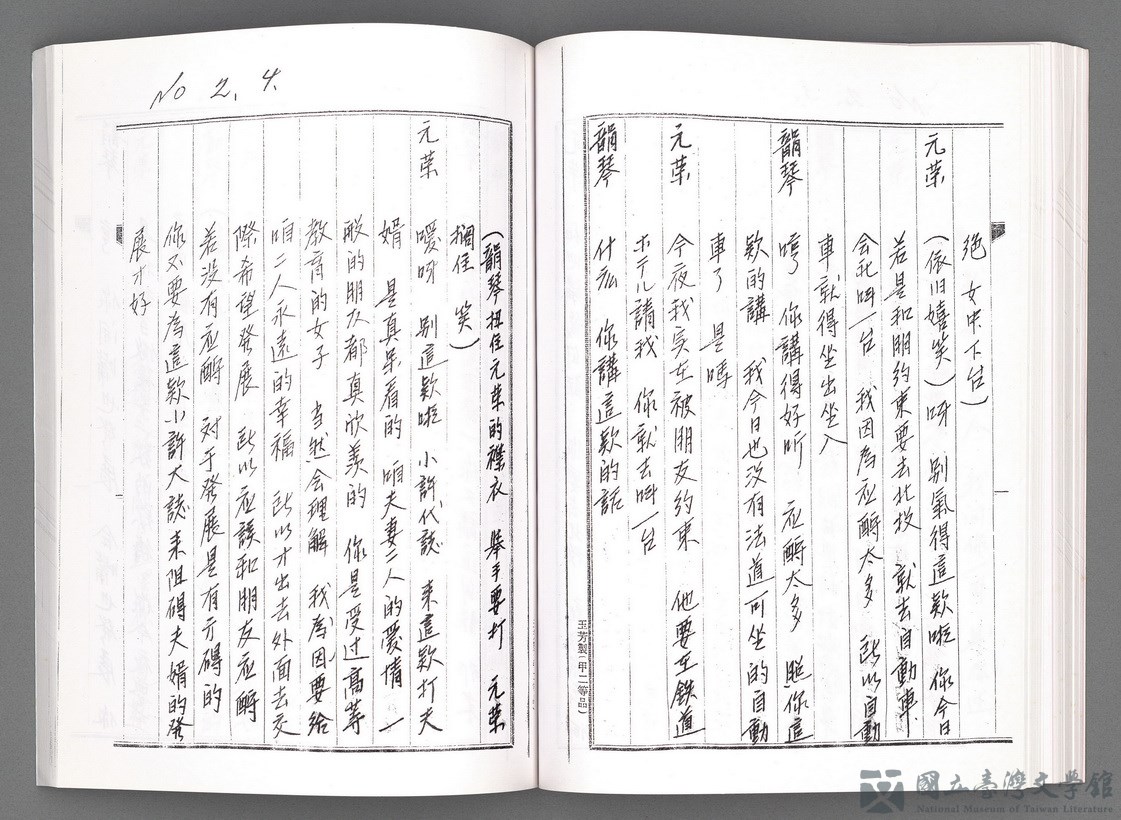 絕 女中下台)
元荣 (依旧嬉笑) 呀 别氣得這欵啦 你今日
若是和朋友約束要去北投 就去自動車
会社叫一台 我因為应酬太多 所以自動
車就得坐出坐入
韻琴 哼 你講得好听 应酬太多 照你這
欵的講 我今日也没有法道可坐的自動
車了 是嗎
元荣 今夜我实在被朋友約束 他要在鉄道
ホテル請我 你就去叫一台
韻琴 什么 你講這欵的話
玉芳製(甲二等品)
No 2.4.
(韻琴扭住元荣的襟衣 舉手要打 元荣
捆住 笑)
元荣 嗳呀 别這欵啦 小許代誌 来這欵打夫
婿 是真呆看的 咱夫妻二人的愛情 一
般的朋友都真欣羨的 你是受过高等
教育的女子 当然会理解 我為因要给
咱二人永遠的幸福 所以才出去外面去交
際希望發展 所以应該和朋友应酬
若没有应酬 对于發展是有亏碍的
你不要為這欵小許大誌来阻碍夫婿的發
展才好
國立臺灣文學館
National Museum of Taiwan Literature